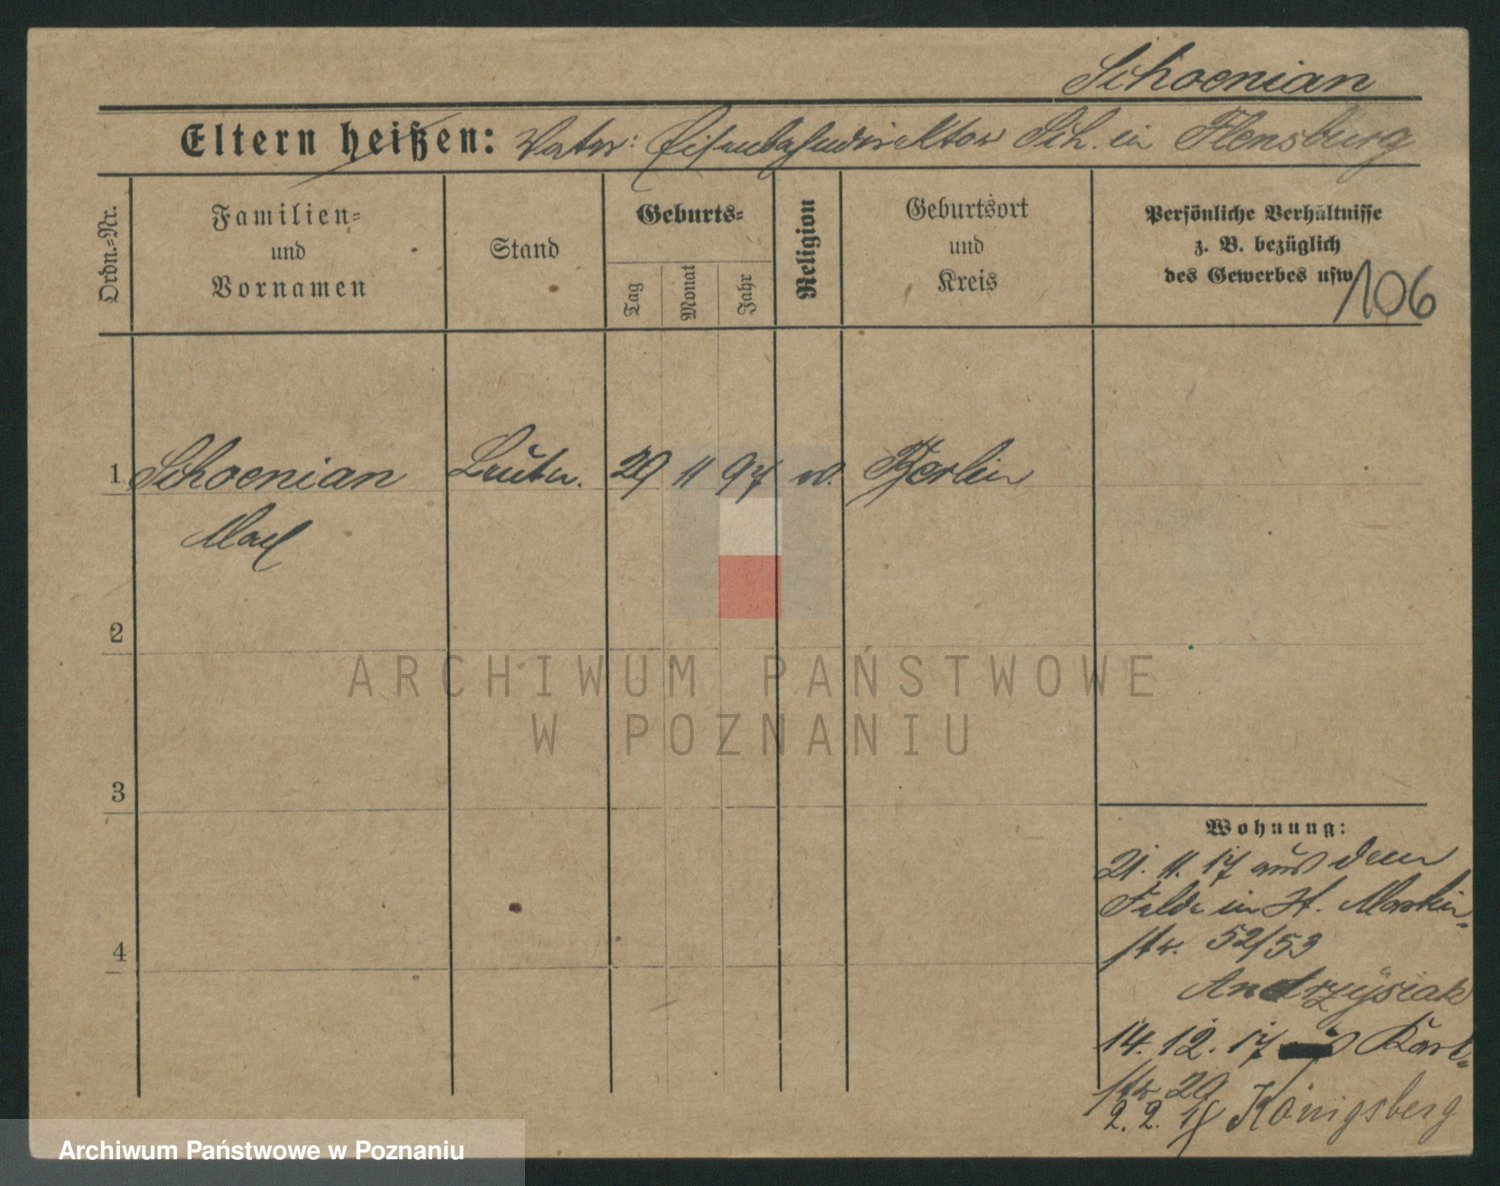 Schoenian
Eltern heißen: Vater: Eisenbahndirektor Sch. in Flensburg
Ordn.=Nr.
Familien=
und
Vornamen
Stand
Geburts=
Tag
Monat
Jahr
Religion
Geburtsort
und
Kreis
Persönliche Verhältnisse
z. B. bezüglich
des Gewerbes usw.
106
1 Schoenian Leutn. 29 11 97 ev. Berlin
2
3
4
Wohnung:
21. 11. 17 aus dem
Felde in H. Martin-
str. 52/53
Andrzysiak
14. 12. 17
str 20
2. 2. 18 Königsberg
ARCHIWUM PAŃSTWOWE
W POZNANIU
Archiwum Państwowe w Poznaniu